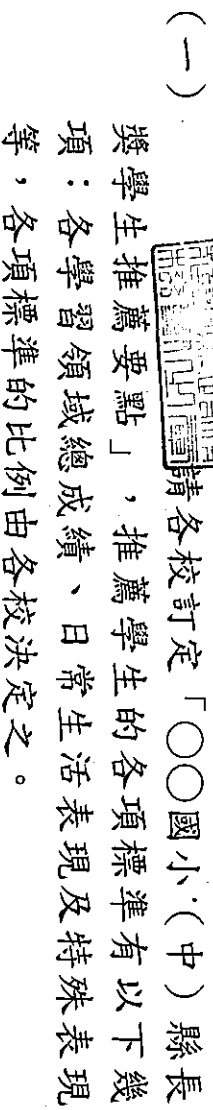 (一)請各校訂定「○○國小(中)縣長
獎學生推薦要點」,推薦學生的各項標準有以下幾
項:各學習領域總成績、日常生活表現及特殊表現
等,各項標準的比例由各校決定之。